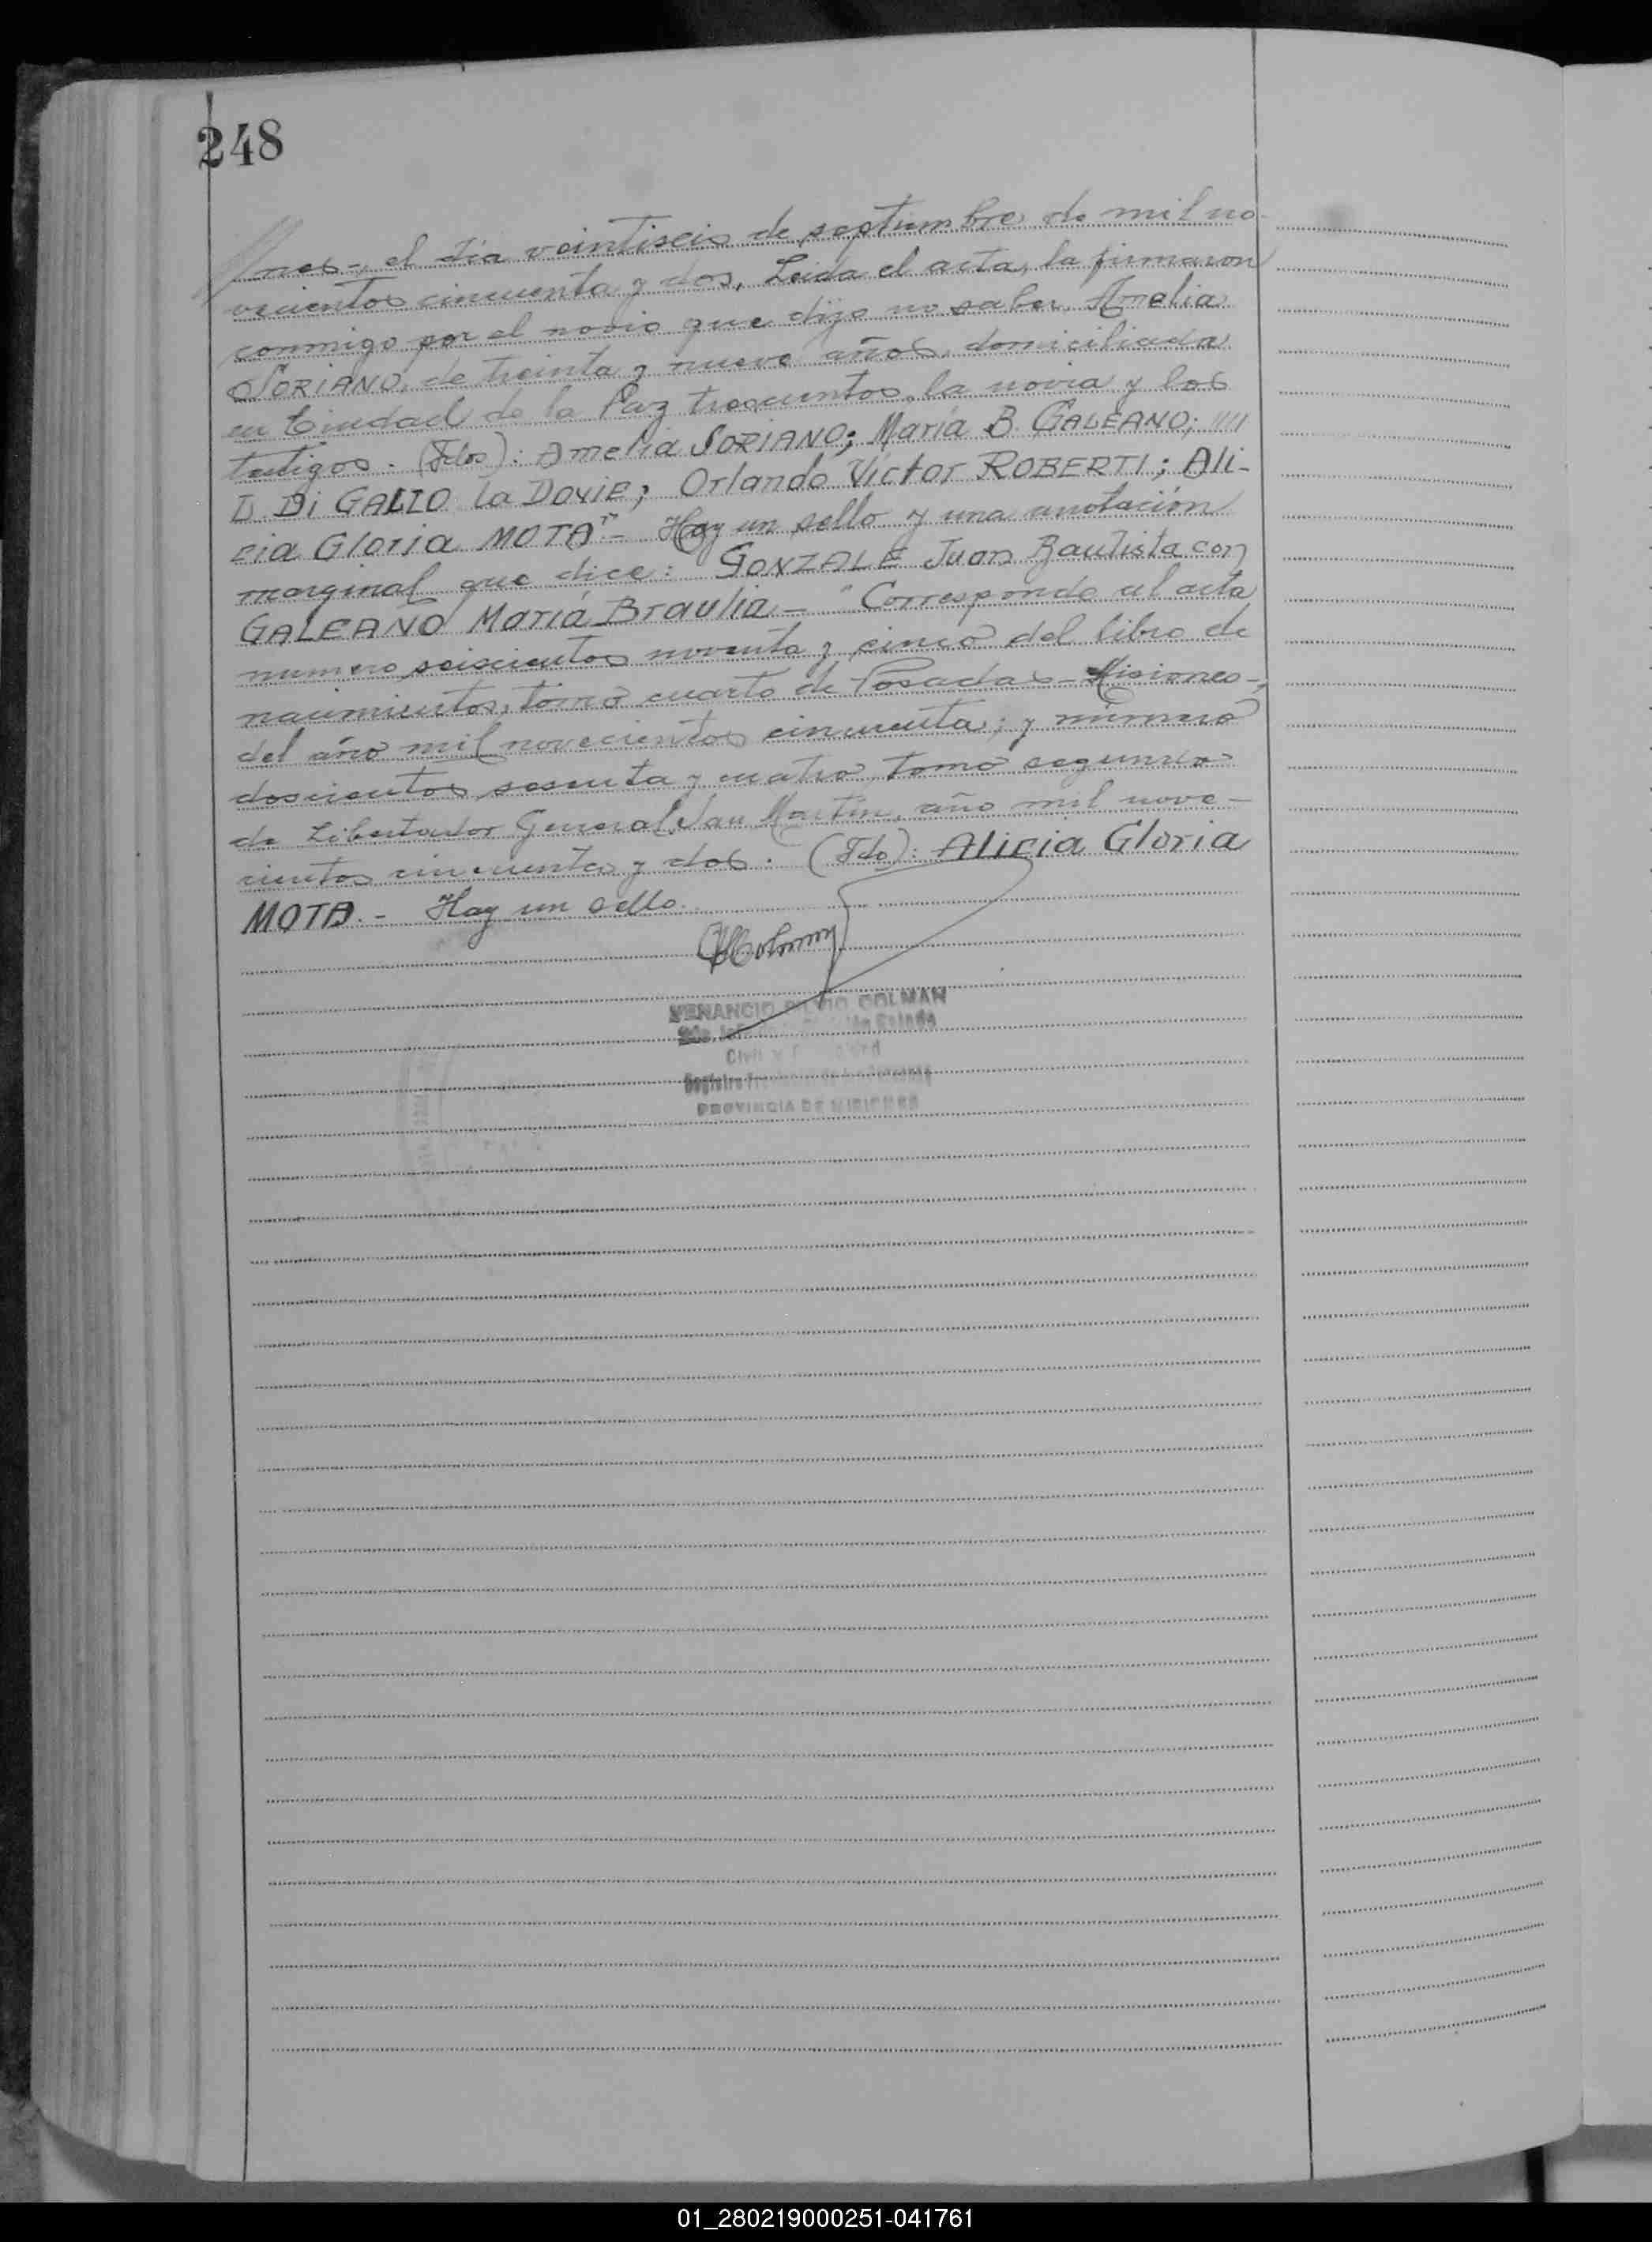 248
nes-, el día veintiseis de septiembre de mil no-
vecientos cincuenta y dos, Leída el acta, la firmaron
conmigo por el novio que dijo no saber, Amelia
SORIANO, de treinta y nueve años, domiciliada
en Ciudad de la Paz trescientos, la novia y los
testigos. (Fdos): Amelia SORIANO; María B. GALEANO; ////
D. Di GALLO La DOVIE; Orlando Víctor ROBERTI; Ali-
cia Gloria MOTA".- Hay un sello y una anotación
marginal que dice: GONZALE Juan Bautista con
GALEANO María Braulia - "Corresponde al acta
numero seiscientos noventa y cinco del libro de
nacimientos, tomo cuarto de Posadas - Misiones -,
del año mil novecientos cincuenta; y número
doscientos sesenta y cuatro, tomo segundo
de Libertador General San Martín, año mil nove-
cientos cincuenta y dos. (Fdo): Alicia Gloria
MOTA.- Hay un sello.
VENANCIO COLMAN
Civil y
PROVINCIA DE MISIONES
01_280219000251-041761